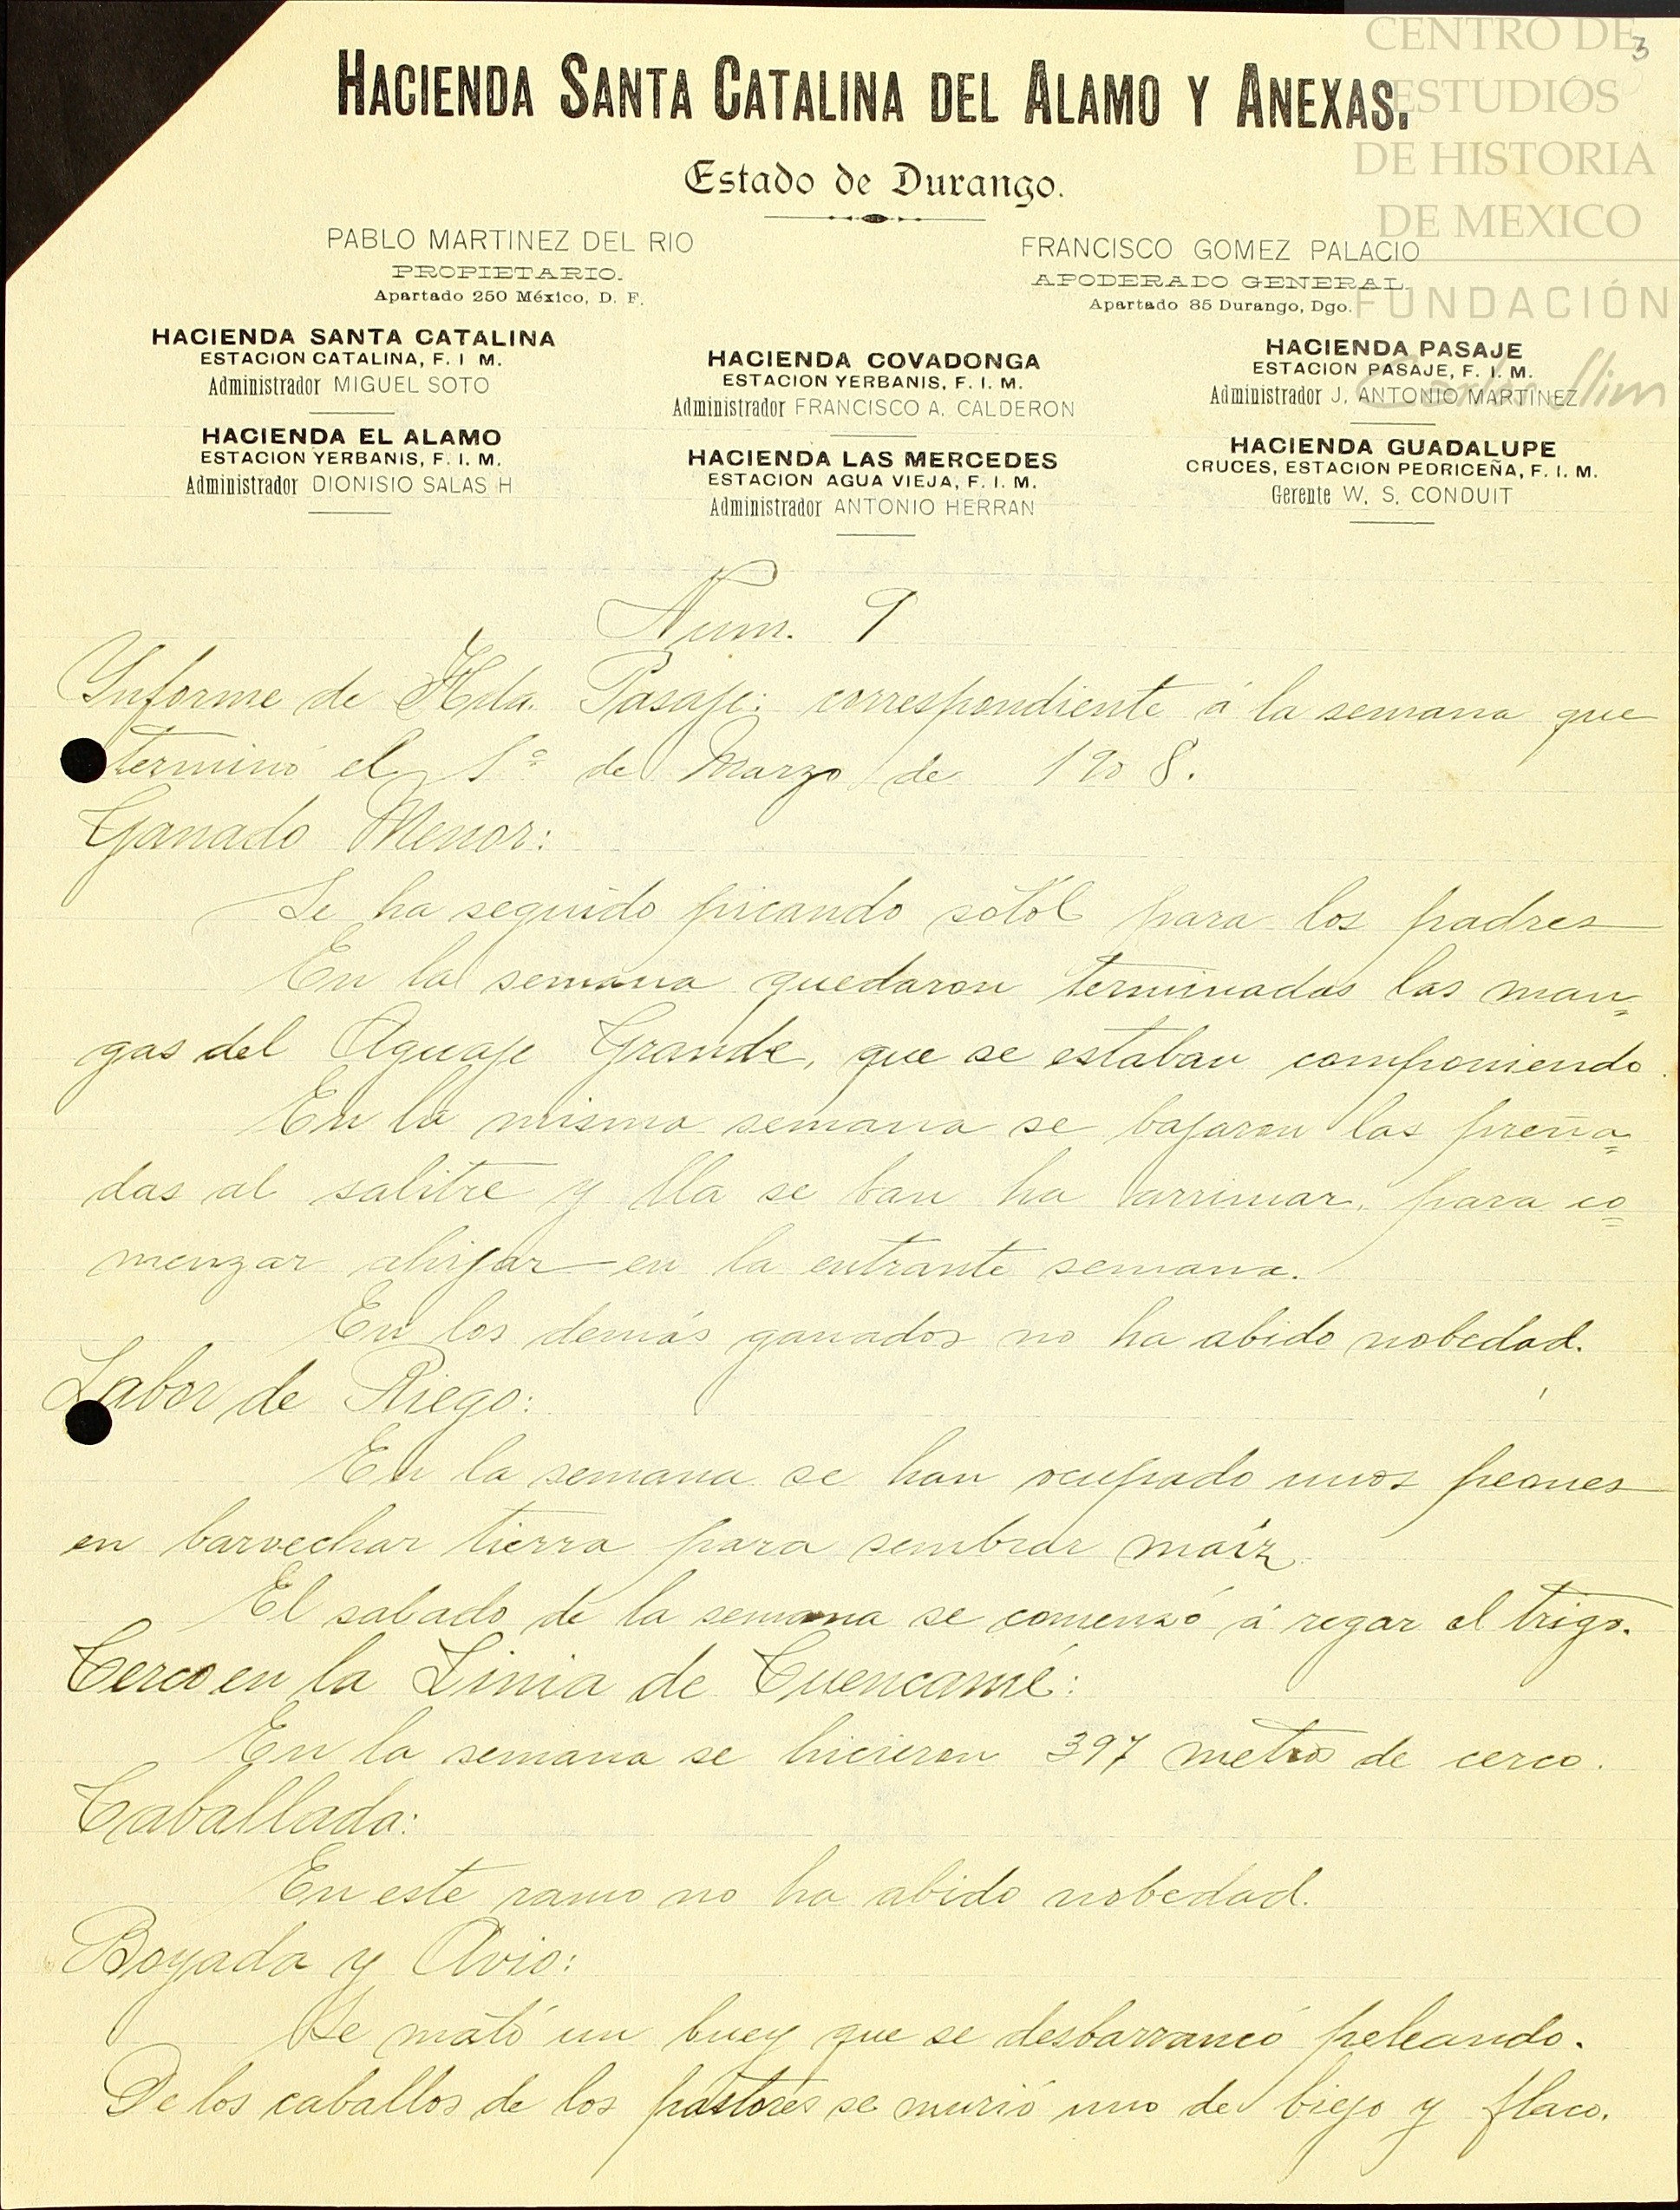 CENTRO DE
ESTUDIOS
DE HISTORIA
DE MEXICO
FUNDACIÓN
Carlos Slim
3
HACIENDA SANTA CATALINA DEL ALAMO Y ANEXAS.
Estado de Durango.
PABLO MARTINEZ DEL RIO
PROPIETARIO.
Apartado 250 México, D. F.
FRANCISCO GOMEZ PALACIO
APODERADO GENERAL.
Apartado 85 Durango, Dgo.
HACIENDA SANTA CATALINA
ESTACION CATALINA, F. I M.
Administrador MIGUEL SOTO
HACIENDA EL ALAMO
ESTACION YERBANIS, F. I. M.
Administrador DIONISIO SALAS H
HACIENDA COVADONGA
ESTACION YERBANIS, F. I. M.
Administrador FRANCISCO A. CALDERON
HACIENDA LAS MERCEDES
ESTACION AGUA VIEJA, F. I. M.
Administrador ANTONIO HERRAN
HACIENDA PASAJE
ESTACION PASAJE, F. I. M.
Administrador J. ANTONIO MARTINEZ
HACIENDA GUADALUPE
CRUCES, ESTACION PEDRICEÑA, F. I. M.
Gerente W. S. CONDUIT
Num. 9
Informe de Hda. Pasaje: correspondiente á la semana que
terminó el 1º de Marzo de 1908.
Ganado Menor:
Se ha seguido picando sotol para los padres
En la semana quedaron terminadas las man=
gas del Aguaje Grande, que se estaban componiendo.
En la misma semana se bajaron las preña=
das al salitre y lla se ban ha arrimar, para co=
menzar ahijar en la entrante semana.
En los demás ganados no ha abido nobedad.
Labor de Riego:
En la semana se han ocupado unos peones
en barvechar tierra para sembrar maíz
El sabado de la semana se comenzó á regar el trigo.
Cerco en la Linia de Cuencamé:
En la semana se hicieron 397 metros de cerco.
Caballada:
En este ramo no ha abido nobedad.
Boyada y Avio:
Se mató un buey que se desbarrancó peleando.
De los caballos de los pastores se murió uno de biejo y flaco.